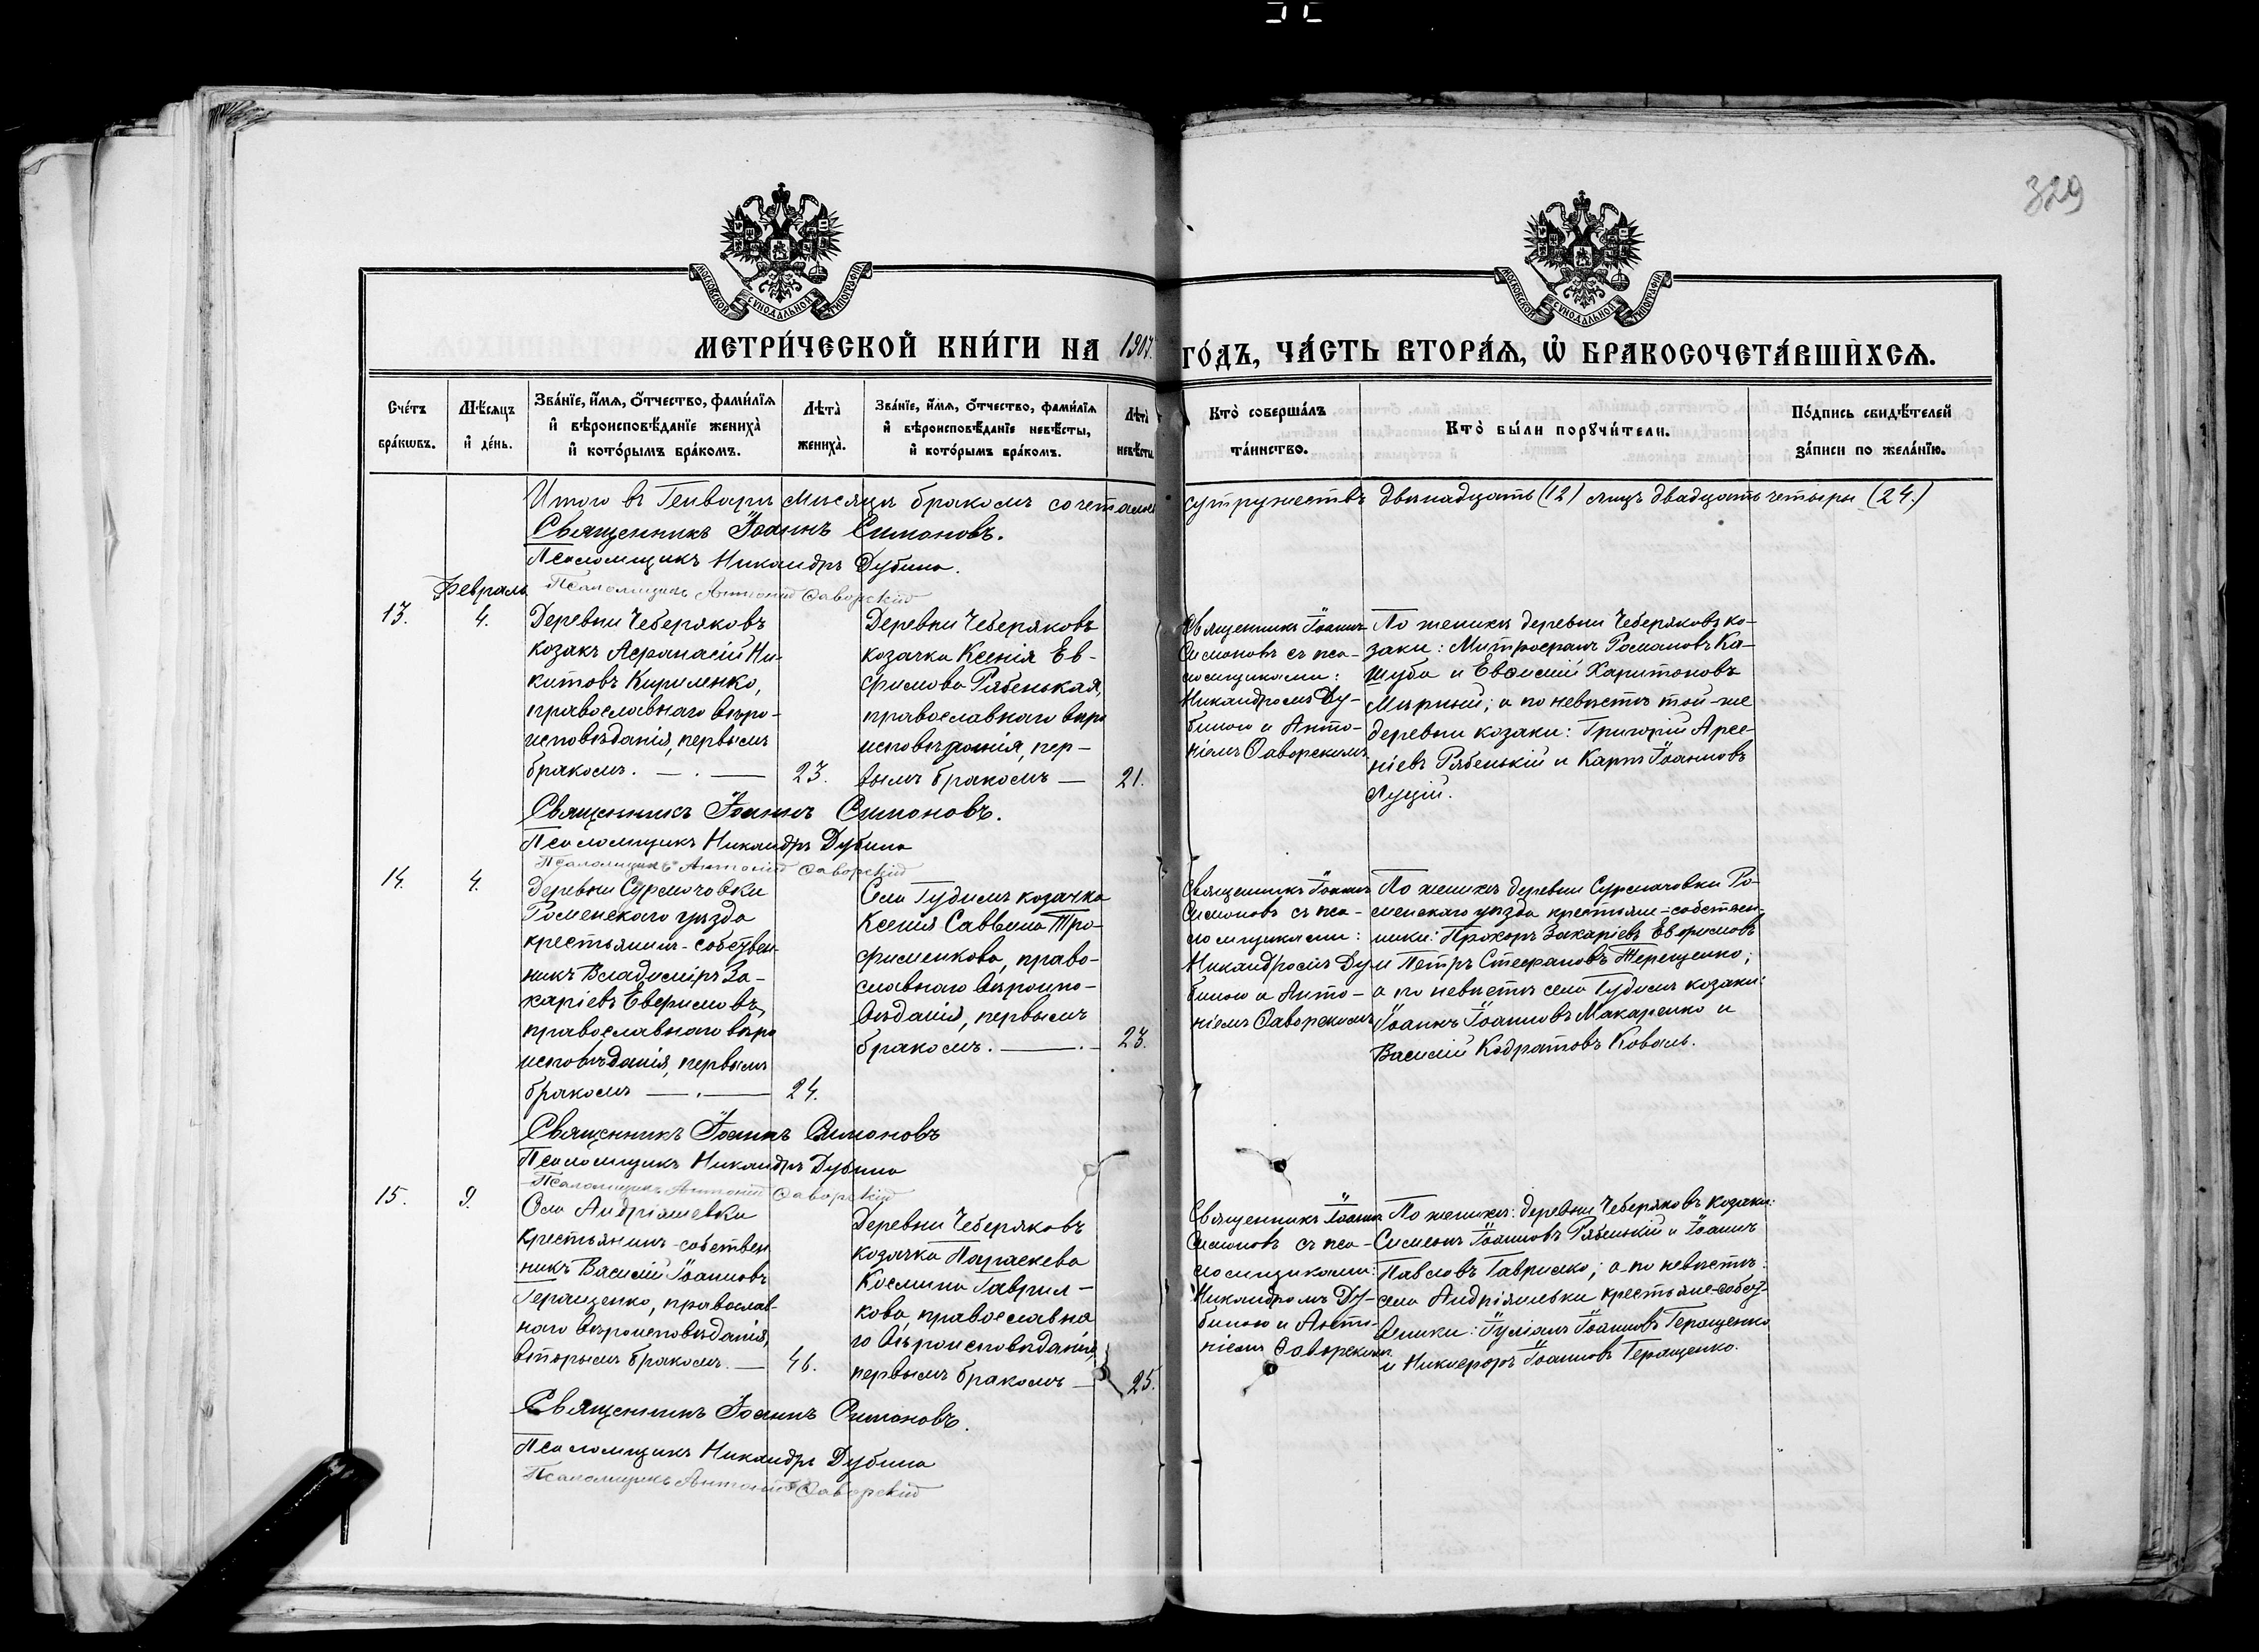 329
МОСКОВСКОЙ СѴНОДАЛЬНОЙ ТИПОГРАФІИ
МОСКОВСКОЙ СѴНОДАЛЬНОЙ ТИПОГРАФІИ
МЕТРИ́ЧЕСКОЙ КНИ́ГИ НА 1907. ГО́ДЪ, ЧА́СТЬ ВТОРА́Я, Ѡ БРАКОСОЧЕТА́ВШИХСѦ.
Сче́тъ бра́кѡвъ.
Мѣ́сяцъ и де́нь.
Зва́нїе, и́мѧ, ѻ́тчество, фами́лїѧ
и вѣроисповѣ́данїе жениха̀
и кото́рымъ бра́комъ.
Лѣта̀ жениха̀.
Зва́нїе, и́мѧ, ѻ́тчество, фами́лїѧ
и вѣроисповѣ́данїе невѣ́сты,
и кото́рымъ бра́комъ.
Лѣта̀ невѣ́сты
Кто̀ соверша́лъ
та́инство.
Кто̀ бы́ли порꙋчи́тели.
По́дпись свидѣ́телей
за́писи по жела́нїю.
Итого въ Генварѣ мѣсяцѣ бракомъ сочеталось супружествъ двѣнадцать (12) лицъ двадцать четыры (24.)
Священникъ Іоаннъ Симоновъ.
Псаломщикъ Никандръ Дубина.
Псаломщикъ Антоній Ѳаворскій
Февраль
13.
4.
Деревни Чеберяковъ
козакъ Аѳанасій Ни-
китовъ Кириленко,
православнаго вѣро-
исповѣданія, первымъ
бракомъ. — . —
23.
Деревни Чеберяковъ
козачка Ксенія Ев-
фимова Рябенькая,
православнаго вѣро
исповѣданія, пер-
вымъ бракомъ —
21.
Священникъ Іоаннъ
Симоновъ съ пса-
ломщиками:
Никандромъ Ду-
биною и Анто-
ніемъ Ѳаворскимъ
По женихѣ деревни Чеберяковъ ко-
заки: Митрофанъ Романовъ Ка-
шуба и Евѳимій Харитоновъ
Мирный; а по невѣстѣ той-же
деревни козаки: Григорій Арсе-
ніевъ Рябенькій и Карпъ Іоанновъ
Луцій.
Священникъ Іоаннъ Симоновъ.
Псаломщикъ Никандръ Дубина
Псаломщикъ Антоній Ѳаворскій
14.
4.
Деревни Сурмачовки
Роменскаго уѣзда
крестьянинъ-собствен
никъ Владиміръ За-
харіевъ Евфимовъ,
православнаго вѣро
исповѣданія, первымъ
бракомъ — . —
24.
Села Гудимъ козачка
Ксенія Саввина Тро-
фименкова, право-
славнаго вѣроиспо-
вѣданія, первымъ
бракомъ. — . —
23.
Священникъ Іоаннъ
Симоновъ съ пса-
ломщиками:
Никандромъ Ду-
биною и Анто-
ніемъ Ѳаворскимъ
По женихѣ деревни Сурмачовки Ро-
менскаго уѣзда крестьяне-собствен-
ники: Прохоръ Захаріевъ Евфимовъ
и Петръ Стефановъ Терещенко;
а по невѣстѣ села Гудимъ козаки:
Іоаннъ Іоанновъ Макаренко и
Василій Кодратовъ Коваль.
Священникъ Іоаннъ Симоновъ
Псаломщикъ Никандръ Дубина
Псаломщикъ Антоній Ѳаворскій
15.
9.
Села Андріяшевки
крестьянинъ-собствен
никъ Василій Іоанновъ
Геращенко, православ-
наго вѣроисповѣданія,
вторымъ бракомъ. —
46.
Деревни Чеберяковъ
козачка Параскева
Космина Гаврил-
кова, православна
го вѣроисповѣданія,
первымъ бракомъ —
25.
Священникъ Іоаннъ
Симоновъ съ пса-
ломщиками:
Никандромъ Ду-
биною и Анто-
ніемъ Ѳаворскимъ
По женихѣ: деревни Чеберяковъ козаки:
Симеонъ Іоанновъ Рябенькій и Іоаннъ
Павловъ Гаврилко; а по невѣстѣ:
села Андріяшевки крестьяне-собст-
веники: Іуліанъ Іоанновъ Геращенко
и Никифоръ Іоанновъ Геращенко.
Священникъ Іоаннъ Симоновъ.
Псаломщикъ Никандръ Дубина
Псаломщикъ Антоній Ѳаворскій